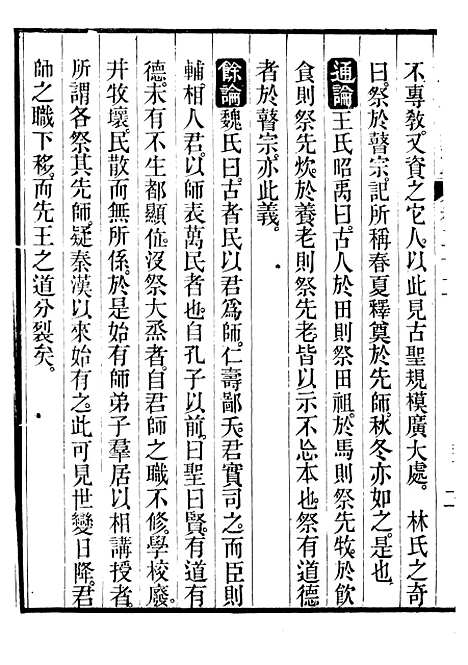 不專敎又資之它人以此見古聖規模廣大處。　林氏之奇
曰祭於瞽宗記所稱春夏釋奠於先師秋冬亦如之是也
通論　王氏昭禹曰古人於田則祭田祖於馬則祭先牧於飮
食則祭先炊於養老則祭先老皆以示不忘本也祭有道德
者於瞽宗亦此義。
餘論　魏氏曰古者民以君爲師仁壽鄙夭君實司之而臣則
輔相人君以師表萬民者也自孔子以前曰聖曰賢有道有
德未有不生都顯位沒祭大烝者自君師之職不修學校廢
井牧壞民散而無所係於是始有師弟子羣居以相講授者
所謂各祭其先師疑秦漢以來始有之此可見世變日降君
師之職下移而先王之道分裂矣。